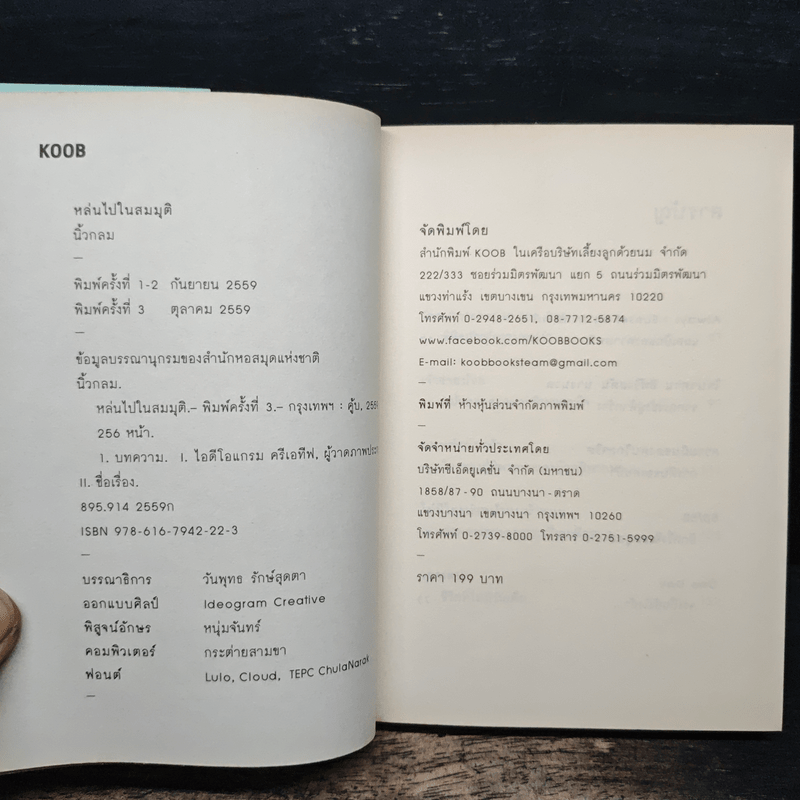 KOOB
หล่นไปในสมมุติ
นิ้วกลม
—
พิมพ์ครั้งที่ 1-2 กันยายน 2559
พิมพ์ครั้งที่ 3 ตุลาคม 2559
—
ข้อมูลบรรณานุกรมของสำนักหอสมุดแห่งชาติ
นิ้วกลม.
หล่นไปในสมมุติ.– พิมพ์ครั้งที่ 3.– กรุงเทพฯ : คู้บ, 2559
256 หน้า.
1. บทความ. I. ไอดีโอแกรม ครีเอทีฟ, ผู้วาดภาพประกอบ
II. ชื่อเรื่อง.
895.914 2559ก
ISBN 978-616-7942-22-3
—
บรรณาธิการ วันพุทธ รักษ์สุดตา
ออกแบบศิลป์ Ideogram Creative
พิสูจน์อักษร หนุ่มจันทร์
คอมพิวเตอร์ กระต่ายสามขา
ฟอนต์ Lulo, Cloud, TEPC ChulaNarak
—
จัดพิมพ์โดย
สำนักพิมพ์ KOOB ในเครือบริษัทเลี้ยงลูกด้วยนม จำกัด
222/333 ซอยร่วมมิตรพัฒนา แยก 5 ถนนร่วมมิตรพัฒนา
แขวงท่าแร้ง เขตบางเขน กรุงเทพมหานคร 10220
โทรศัพท์ 0-2948-2651, 08-7712-5874
www.facebook.com/KOOBBOOKS
E-mail: koobbooksteam@gmail.com
—
พิมพ์ที่ ห้างหุ้นส่วนจำกัดภาพพิมพ์
—
จัดจำหน่ายทั่วประเทศโดย
บริษัทซีเอ็ดยูเคชั่น จำกัด (มหาชน)
1858/87-90 ถนนบางนา-ตราด
แขวงบางนา เขตบางนา กรุงเทพฯ 10260
โทรศัพท์ 0-2739-8000 โทรสาร 0-2751-5999
—
ราคา 199 บาท